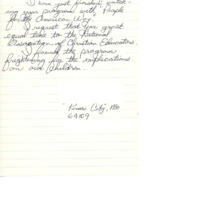 I have just finished watch-
ing your program with People
for the American Way.
I request that you grant
equal time to the National
Association of Christian Educators.
I found the program
frightening for the implications
on our children.
Kansas City, Mo
64109